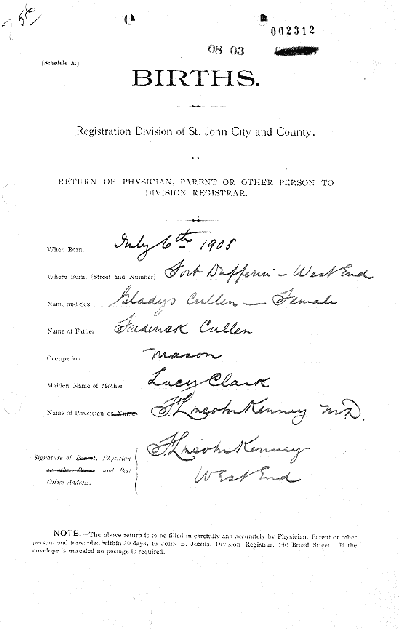 002312
08 03
(Schedule A.)
BIRTHS.
Registration Division of St. John City and County.
RETURN OF PHYSICIAN, PARENT OR OTHER PERSON TO
DIVISION REGISTRAR.
When Born July 6th 1905
Where Born (Street and Number) Fort Dufferin - West End
Name and Sex Gladys Cullen - Female
Name of Father Frederick Cullen
Occupation Mason
Maiden Name of Mother Lucy Clark
Name of Physician or Nurse F Lincoln Kenney M.D.
Signature of Parent, Physician F Lincoln Kenney
or other Person and Post West End
Office Address.
NOTE.—The above return is to be filled in carefully and accurately by Physician, Parent or other
person and forwarded within 30 days, to John B. Jones, Division Registrar, Street. If the
envelope is unsealed no postage is required.